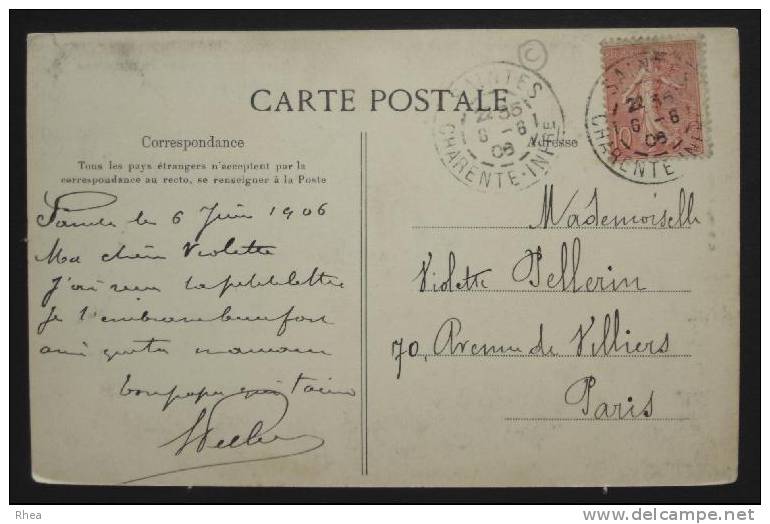 CARTE POSTALE
Correspondance
Tous les pays étrangers n'acceptent par la
correspondance au recto, se renseigner à la Poste
le 6 Juin 1906
Ma chère Violette
J'ai reçu ta petite lettre
Je t'embrasse bien fort
ainsi que ta maman
bon papa
SAINTES
22 35
6 - 6
06
CHARENTE-INFRE
Adresse
SAINTES
22 35
6 - 6
06
CHARENTE-INF
10
C
Mademoiselle
Violette Pellerin
70, Avenue de Villiers
Paris
Rhea
www.delcampe.net